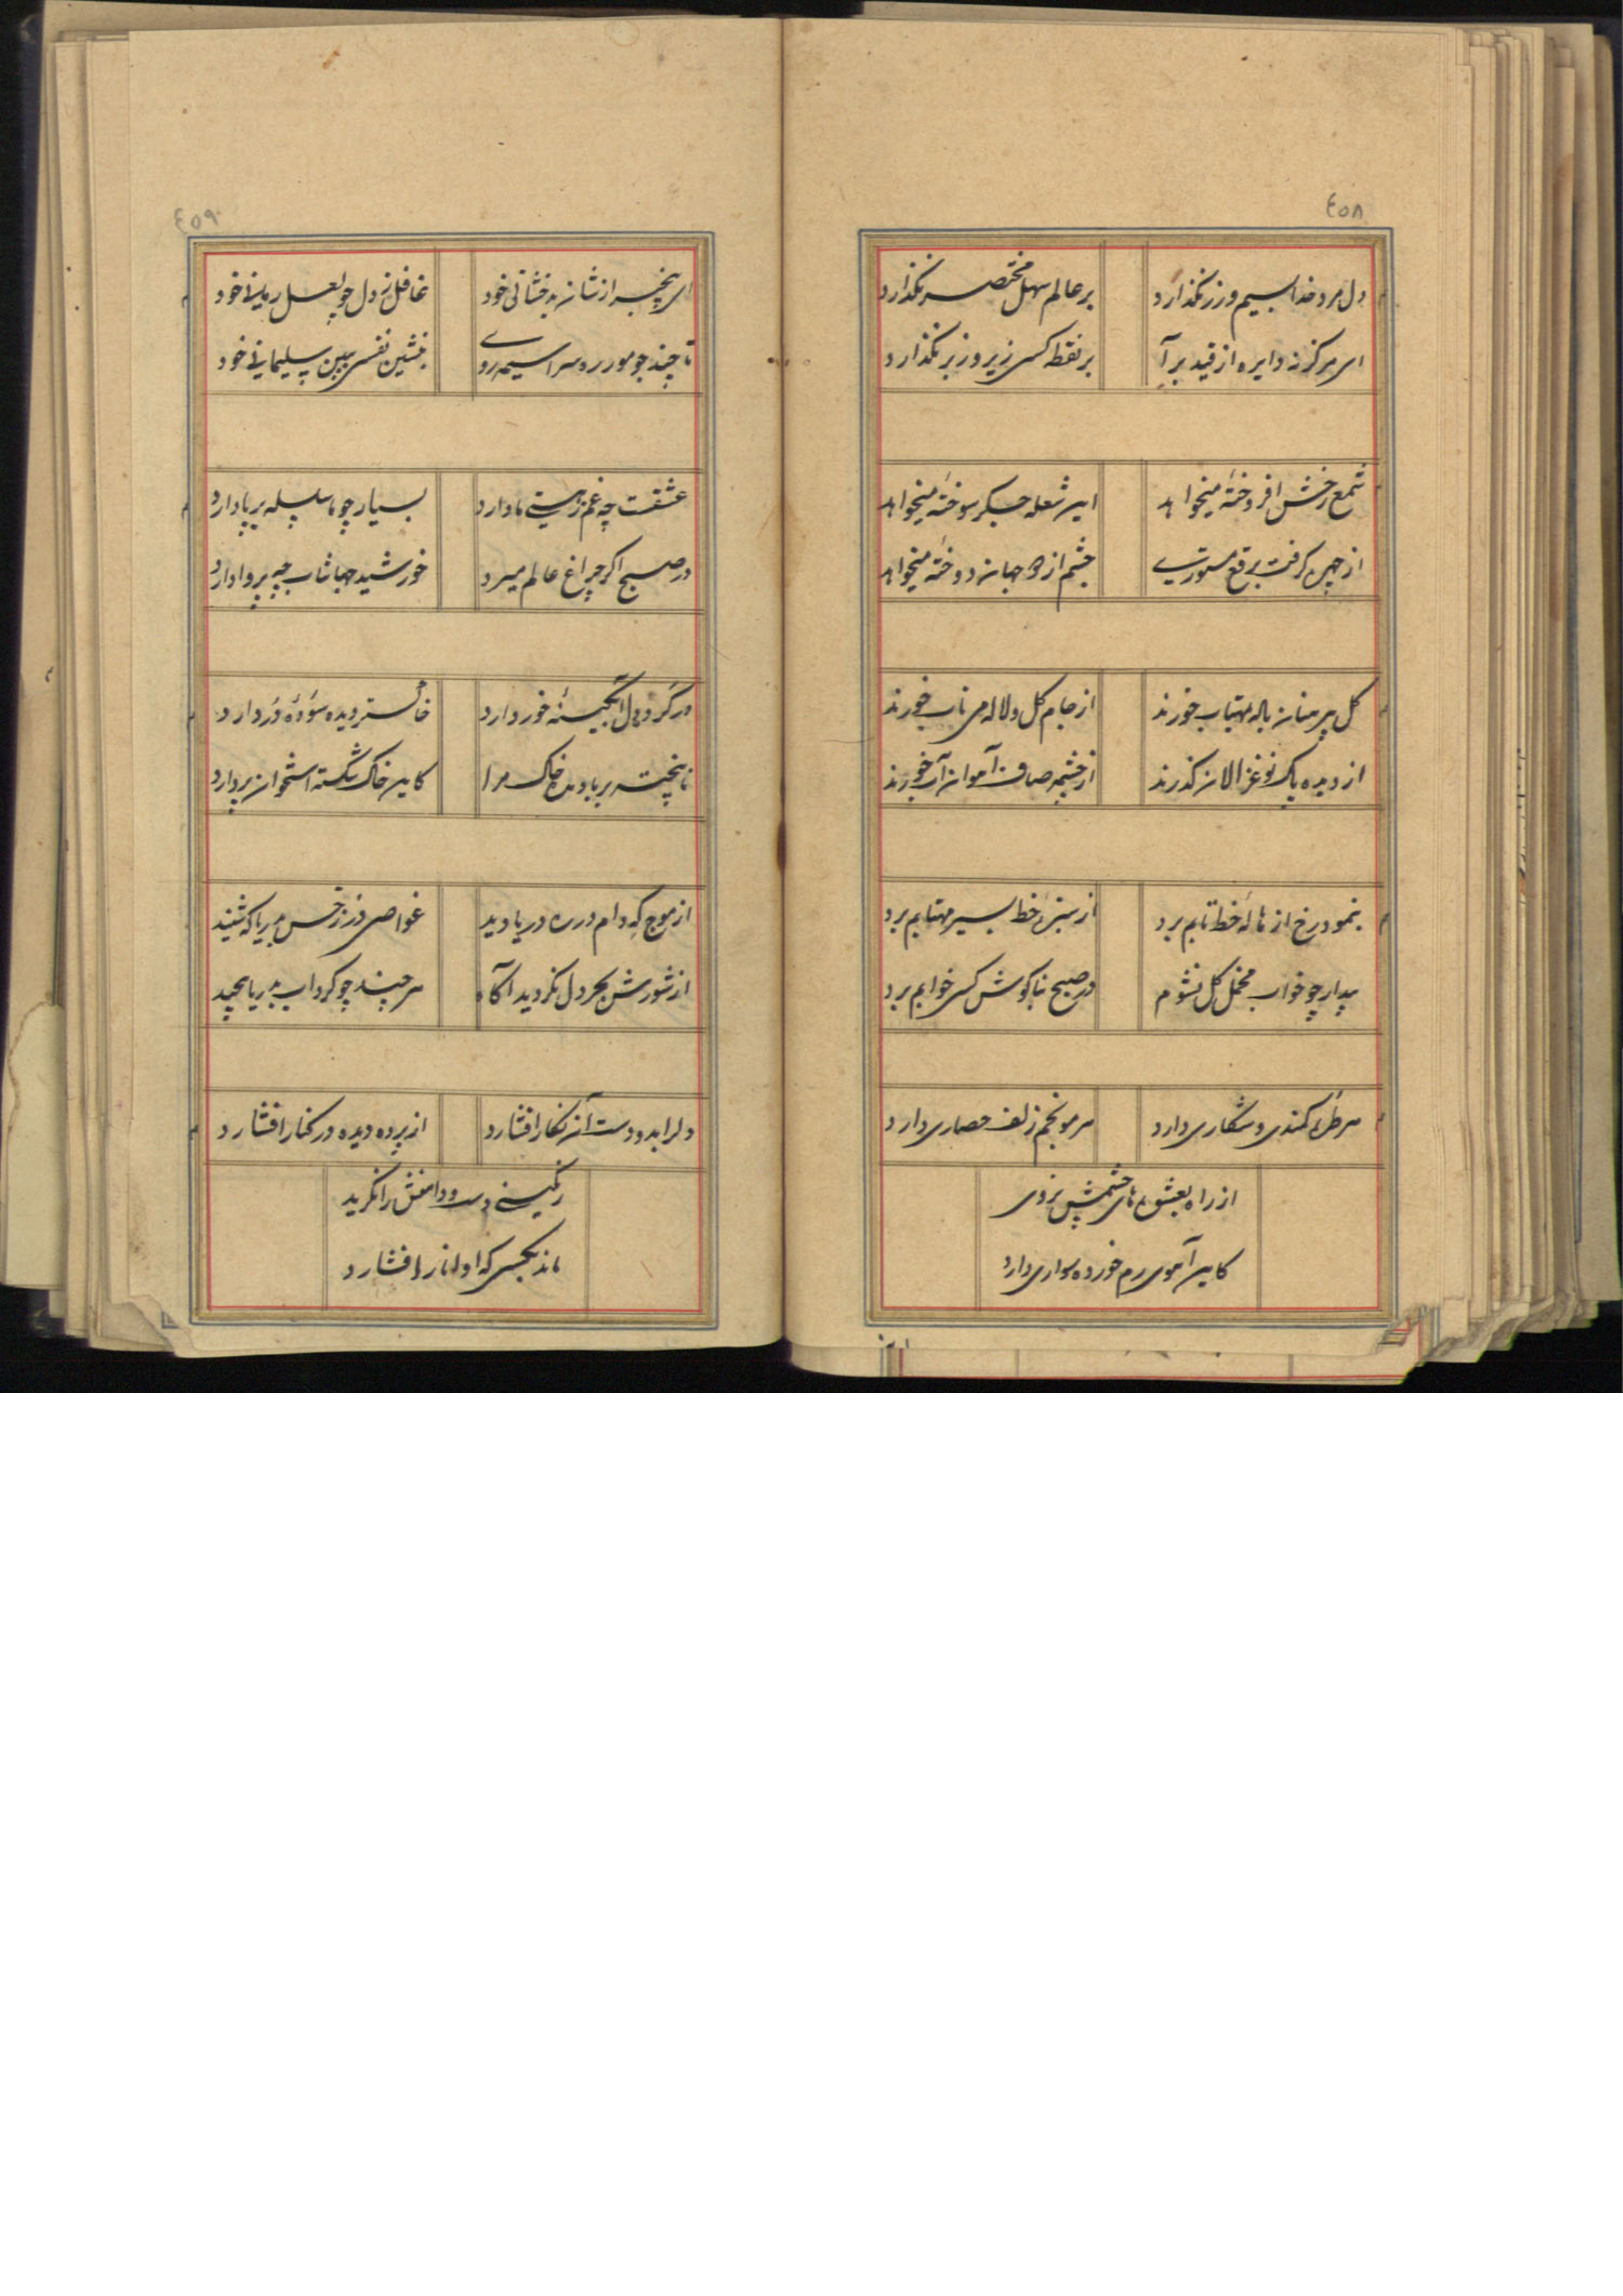 ٤٥٨
دل مرد خدا بسیم و زر نگذارد
بر عالم سهل مختصر نگذارد
ای مرکز نه دایره از قید برآ
بر نقطه کسی زیر و زبر نگذارد
شمع رخش افروخته میخواهد
این شعله جگر سوخته میخواهد
از چهره گرفت برقع مستوری
چشم از دو جهان دوخته میخواهد
گل پیرهنان باله مهتاب خورند
از جام گل و لاله می ناب خورند
از دیده پاک تو غزالان گذرند
از چشمه صاف آهوان آب خورند
بنمود رخ از هاله خط تابم برد
از سبزه خط بسیر مهتابم برد
بیدار چو خواب مخمل گل نشوم
در صبح بناگوش کسی خوابم برد
هر طره کمندی و شکاری دارد
هر مو خم زلف حصاری دارد
از راه بعشوه‌های چشمش نروی
کاین آهوی رم خورده سواری دارد
٤٥٩
ای بیخبر از شان بدخشانی خود
غافل ز دل چو لعل رمانی خود
تا چند چو مور در سراسیمه روی
بنشین نفسی ببین سلیمانی خود
عشقت چه غم ز هستی ما دارد
بسیار چو ما سلسله بر پا دارد
در صبح اگر چراغ عالم میرد
خورشید جهانتاب چه پروا دارد
در گرد دل آبگینه خور دارد
خاکستر دیده سوده در دارد
نا پخته بر باد مده خاک مرا
کاین خاک شکسته استخوان بر دارد
از موج که دام در ره دریا دید
غواصی در ز خس بدریا که شنید
از شورش بحر دل نگردید آگاه
هر چند چو گرداب بدریا پیچید
دل را بدو دست آن نگار افشارد
از پرده دیده در کنار افشارد
رنگینی دست و دامنش را نگرید
ماند بکسی که او انار افشارد